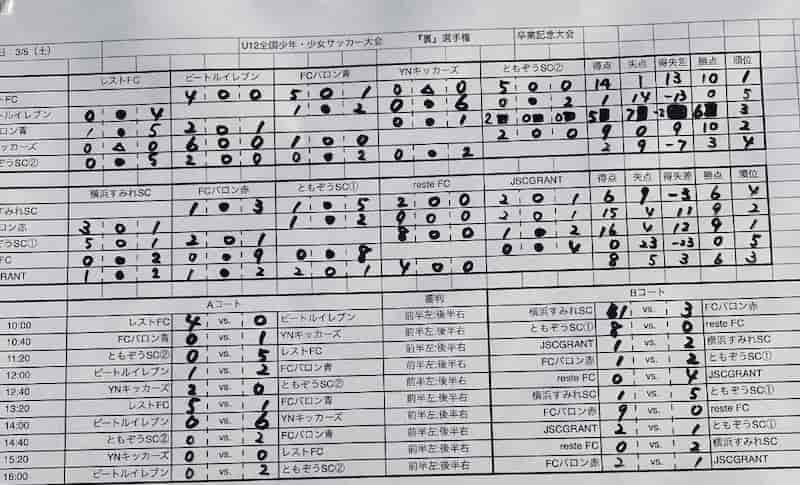 日 3/5（土） U12全国少年・少女サッカー大会 『裏』選手権 卒業記念大会
レストFC ビートルイレブン FCバロン青 YNキッカーズ ともぞうSC② 得点 失点 得失差 勝点 順位
トFC 4 0 0 5 0 1 0 △ 0 5 0 0 14 1 13 10 1
トルイレブン 0 ● 4 1 ● 2 0 ● 6 0 ● 2 1 14 -13 0 5
バロン青 1 ● 5 2 0 1 0 ● 1 6 3
ッカーズ 0 △ 0 6 0 0 1 0 0 2 0 0 9 0 9 10 2
ぞうSC② 0 ● 5 2 0 0 0 ● 2 2 9 -7 3 4
横浜すみれSC FCバロン赤 ともぞうSC① reste FC JSCGRANT 得点 失点 得失差 勝点 順位
すみれSC 1 ● 3 1 ● 5 2 0 0 2 0 1 6 9 -3 6 4
ロン赤 3 0 1 1 ● 2 9 0 0 2 0 1 15 4 11 9 2
ぞうSC① 5 0 1 2 0 1 8 0 0 1 ● 2 16 4 12 9 1
FC 0 ● 2 0 ● 9 0 ● 8 0 ● 4 0 23 -23 0 5
GRANT 1 ● 2 1 ● 2 2 0 1 4 0 0 8 5 3 6 3
Aコート 審判 Bコート
10:00 レストFC 4 vs. 0 ビートルイレブン 前半左:後半右 横浜すみれSC 1 vs. 3 FCバロン赤
10:40 FCバロン青 0 vs. 1 YNキッカーズ 前半左:後半右 ともぞうSC① 8 vs. 0 reste FC
11:20 ともぞうSC② 0 vs. 5 レストFC 前半左:後半右 JSCGRANT 1 vs. 2 横浜すみれSC
12:00 ビートルイレブン 1 vs. 2 FCバロン青 前半左:後半右 FCバロン赤 1 vs. 2 ともぞうSC①
12:40 YNキッカーズ 2 vs. 0 ともぞうSC② 前半左:後半右 reste FC 0 vs. 4 JSCGRANT
13:20 レストFC 5 vs. 1 FCバロン青 前半左:後半右 横浜すみれSC 1 vs. 5 ともぞうSC①
14:00 ビートルイレブン 0 vs. 6 YNキッカーズ 前半左:後半右 FCバロン赤 9 vs. 0 reste FC
14:40 ともぞうSC② 0 vs. 2 FCバロン青 前半左:後半右 JSCGRANT 2 vs. 1 ともぞうSC①
15:20 YNキッカーズ 0 vs. 0 レストFC 前半左:後半右 reste FC 0 vs. 2 横浜すみれSC
16:00 ビートルイレブン 0 vs. 2 ともぞうSC② 前半左:後半右 FCバロン赤 2 vs. 1 JSCGRANT